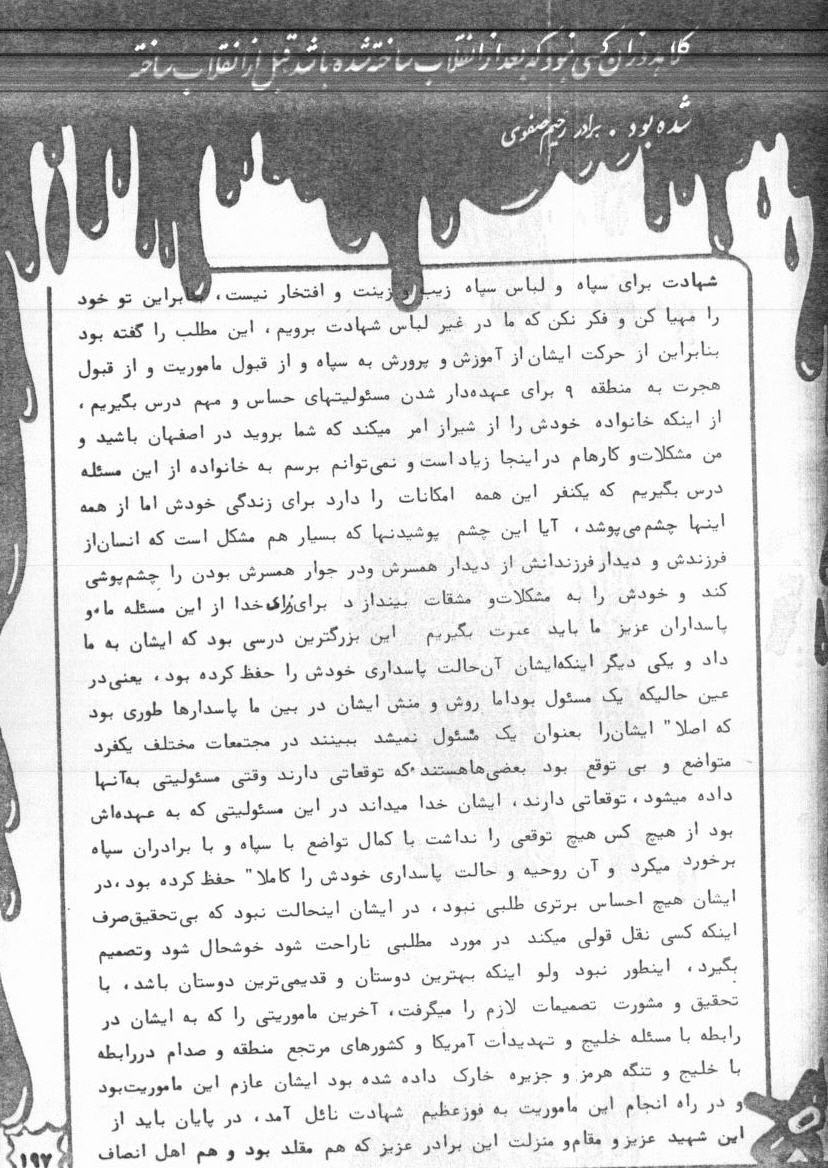 کلاهدوزان کسی نبود که بعد از انقلاب ساخته شده باشد قبل از انقلاب ساخته
شده بود . برادر رحیم صفوی
شهادت برای سپاه و لباس سپاه زیب و زینت و افتخار نیست، بنابراین تو خود
را مهیا کن و فکر نکن که ما در غیر لباس شهادت برویم ، این مطلب را گفته بود
بنابراین از حرکت ایشان از آموزش و پرورش به سپاه و از قبول ماموریت و از قبول
هجرت به منطقه ۹ برای عهده‌دار شدن مسئولیتهای حساس و مهم درس بگیریم ،
از اینکه خانواده خودش را از شیراز امر میکند که شما بروید در اصفهان باشید و
من مشکلات و کارهام دراینجا زیاد است و نمی‌توانم برسم به خانواده از این مسئله
درس بگیریم که یکنفر این همه امکانات را دارد برای زندگی خودش اما از همه
اینها چشم می‌پوشد ، آیا این چشم پوشیدنها که بسیار هم مشکل است که انسان از
فرزندش و دیدار فرزندانش از دیدار همسرش ودر جوار همسرش بودن را چشم‌پوشی
کند و خودش را به مشکلات و مشقات بینداز د برای رای خدا از این مسئله ما و
پاسداران عزیز ما باید عبرت بگیریم این بزرگترین درسی بود که ایشان به ما
داد و یکی دیگر اینکه‌ایشان آن حالت پاسداری خودش را حفظ کرده بود ، یعنی در
عین حالیکه یک مسئول بود اما روش و منش ایشان در بین ما پاسدارها طوری بود
که اصلا" ایشان‌را بعنوان یک مسئول نمیشد ببینند در مجتمعات مختلف یکفرد
متواضع و بی توقع بود بعضی‌هاهستند که توقعاتی دارند وقتی مسئولیتی به‌آنها
داده میشود ، توقعاتی دارند ، ایشان خدا میداند در این مسئولیتی که به عهده‌اش
بود از هیچ کس هیچ توقعی را نداشت با کمال تواضع با سپاه و با برادران سپاه
برخورد میکرد و آن روحیه و حالت پاسداری خودش را کاملا" حفظ کرده بود ، در
ایشان هیچ احساس برتری طلبی نبود ، در ایشان اینحالت نبود که بی‌تحقیق صرف
اینکه کسی نقل قولی میکند در مورد مطلبی ناراحت شود خوشحال شود وتصمیم
بگیرد ، اینطور نبود ولو اینکه بهترین دوستان و قدیمی‌ترین دوستان باشد ، با
تحقیق و مشورت تصمیمات لازم را میگرفت، آخرین ماموریتی را که به ایشان در
رابطه با مسئله خلیج و تهدیدات آمریکا و کشورهای مرتجع منطقه و صدام دررابطه
با خلیج و تنگه هرمز و جزیره خارک داده شده بود ایشان عازم این ماموریت بود
و در راه انجام این ماموریت به فوزعظیم شهادت نائل آمد ، در پایان باید از
این شهید عزیز و مقام و منزلت این برادر عزیز که هم مقلد بود و هم اهل انصاف
۱۹۷